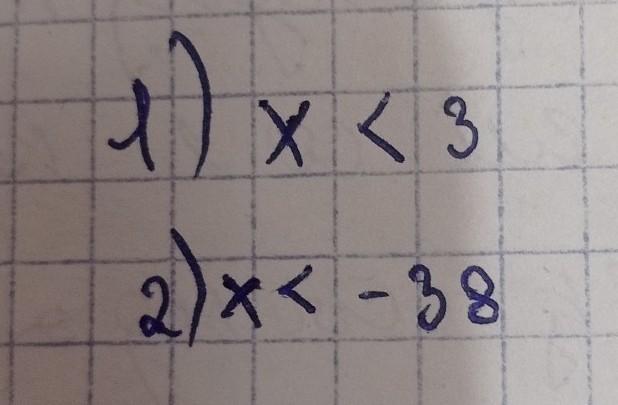 1) x < 3
2) x < - 38